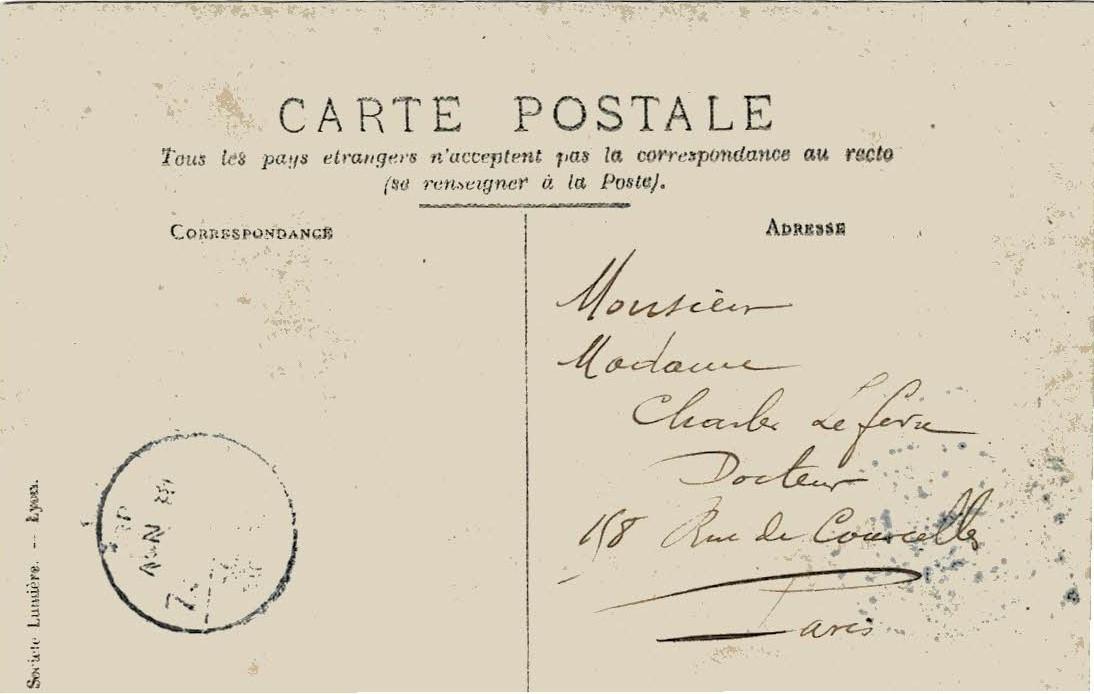 CARTE POSTALE
Tous les pays etrangers n'acceptent pas la correspondance au recto
(se renseigner à la Poste).
CORRESPONDANCE
ADRESSE
Monsieur
Madame
Charles Lefèvre
Docteur
158 Rue de Courcelles
Paris
Societe Lumière. — Lyon.